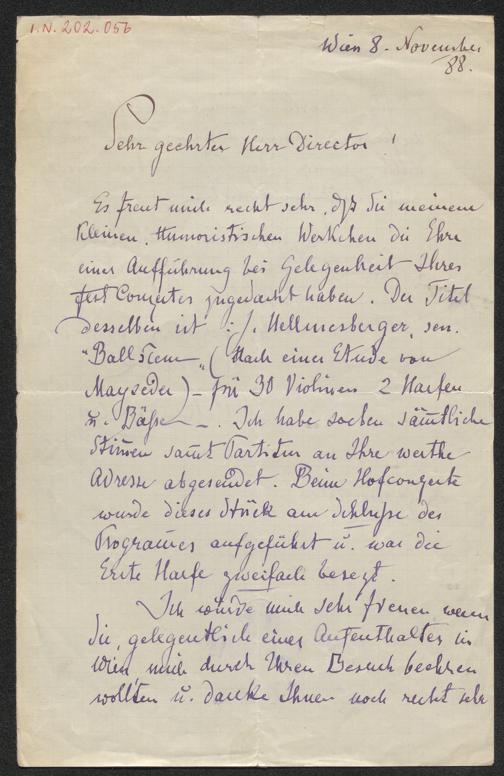 I.N. 202.056
Wien 8. November
88.
Sehr geehrter Herr Director!
Es freut mich recht sehr, dß Sie meinem
kleinen, humoristischen Werkchen die Ehre
einer Aufführung bei Gelegenheit Ihres
fest Conzertes zugedacht haben. Der Titel
desselben ist: J. Hellmesberger, sen.
"Ballscene" (Nach einer Etude von
Mayseder) – für 30 Violinen 2 Harfen
u. Bäße –. Ich habe soeben säm̄tliche
Stim̄en sam̄t Partitur an Ihre werthe
Adresse abgesendet. Beim Hofconzerte
wurde dieses Stück am Schluße des
Program̄es aufgeführt u. war die
Erste Harfe zweifach besezt.
Ich würde mich sehr freuen wenn
Sie, gelegentlich eines Aufenthaltes in
Wien, mich durch Ihren Besuch beehren
wollten u. danke Ihnen noch recht sehr